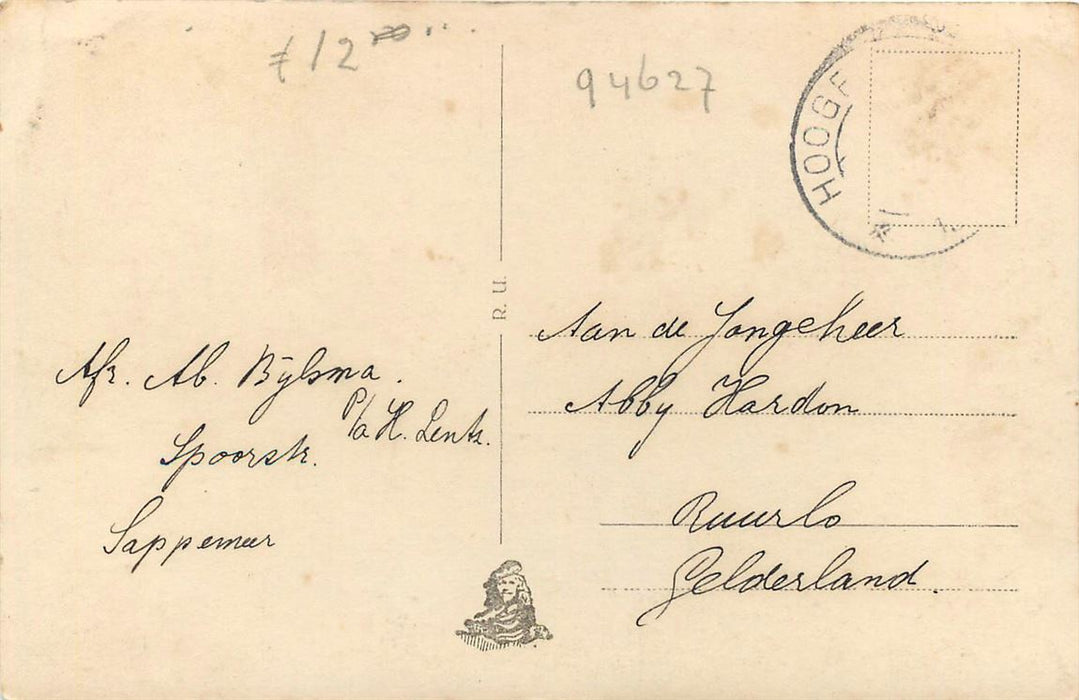 f 12
94627
HOOGE
R. U.
Afz. Ab. Bylsma.
P/a H. Lentz.
Spoorstr.
Sappemeer
Aan de Jongeheer
Abby Hardon
Ruurlo
Gelderland.